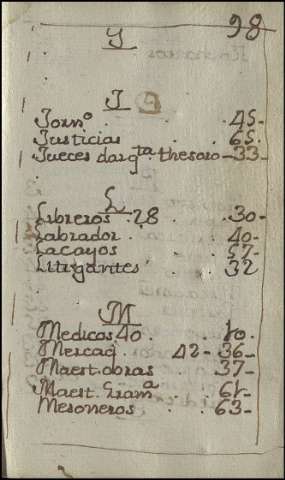 98
J
J
Jorn.º . . 45.
Justicias . . 65.
Jueces darq.ta thesoro - 33.
L
Libreros . 28 . . 30.
Labrador . . 40.
Lacayos . . 57.
Litigantes . . 32
M
Medicos 40 . . 10.
Mercad. . 42 - 36.
Maest. obras . . 37.
Maest. Gram.a . . 61.
Mesoneros . . 63.